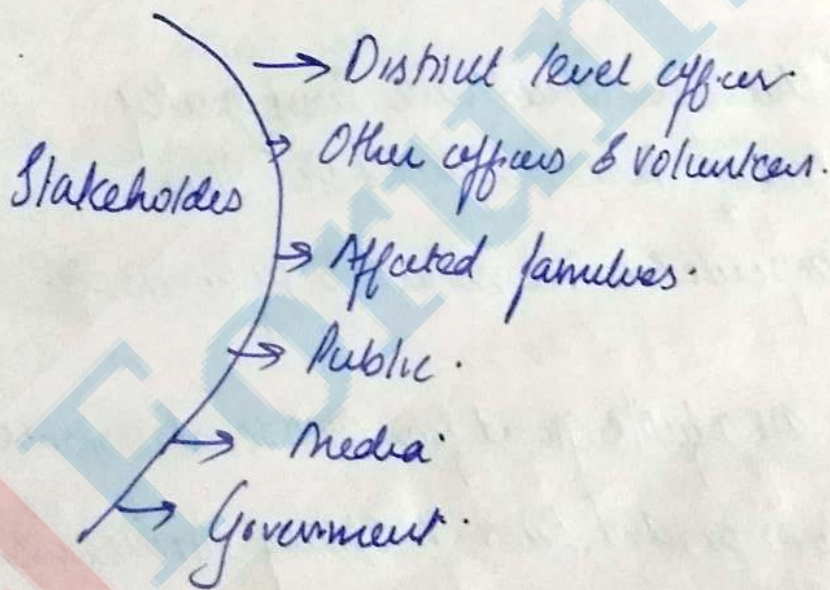 Stakeholdes
→ District level officer.
→ Other officers & volunteers.
→ Affected families.
→ Public.
→ Media.
→ Government.
Forum